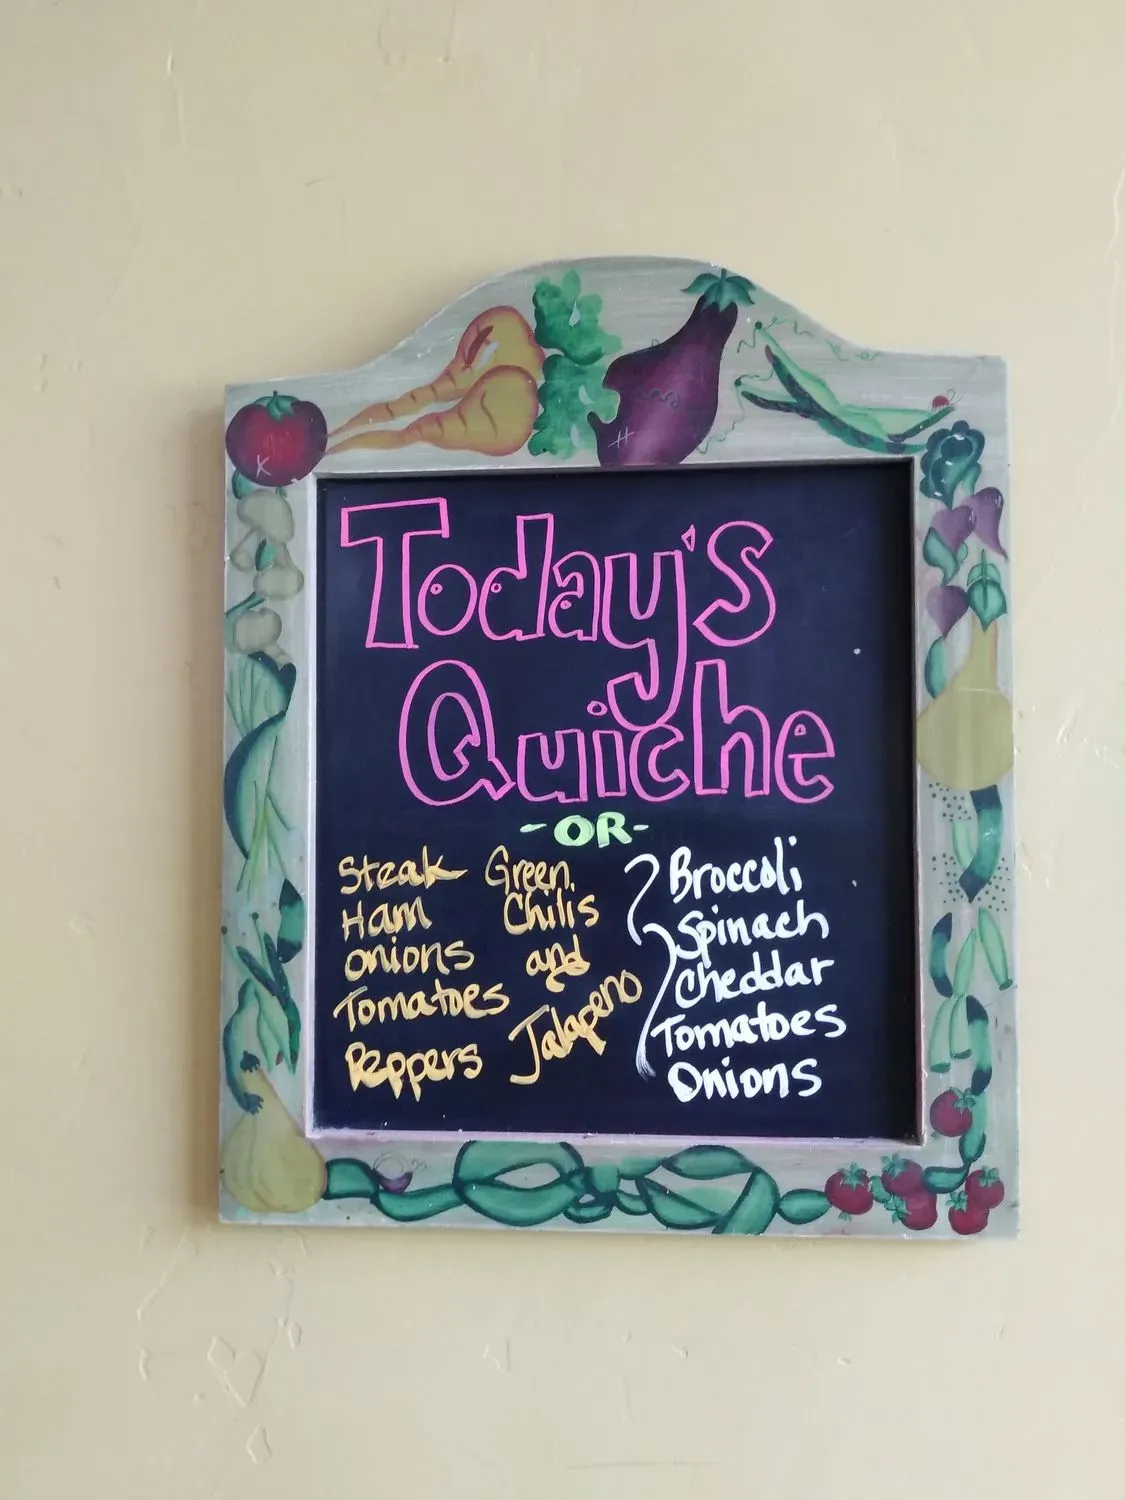 Today's
Quiche
-OR-
Steak
Ham
onions
Tomatoes
Peppers
Green
Chilis
and
Jalapeno
Broccoli
Spinach
Cheddar
Tomatoes
Onions
K
H